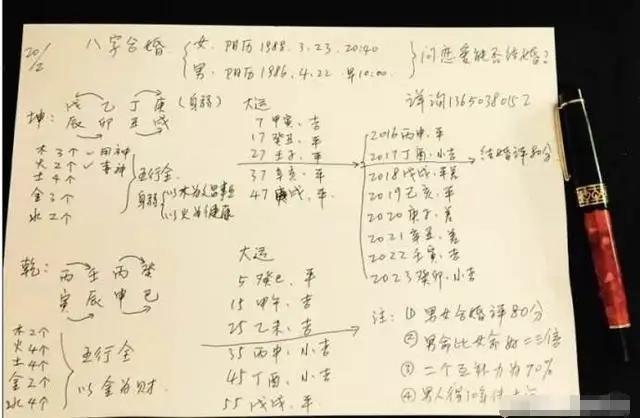 20/2
八字合婚
女:阳历1988.3.23.20:40
男:阳历1986.4.22.早10:00.
问恋爱能否结婚?
详询13650380152
坤:
戊乙丁庚(身弱)
辰卯丑戌
木3个✓用神
火2个✓喜神
土4个
金3个
水2个
五行全
身弱
以木为人品事业
以火为健康
大运
7甲寅、吉
17癸丑、平
27壬子、平
37辛亥、平
47庚戌、平
2016丙申.平
2017丁酉.小吉
2018戊戌.平差
2019己亥.平
2020庚子.差
2021辛丑.差
2022壬寅.吉
2023癸卯.小吉
结婚评80分
乾:
丙壬丙癸
寅辰申巳
木2个
火4个
土4个
金2个
水4个
五行全
以金为财
大运
5癸巳、平
15甲午、吉
25乙未、吉
35丙申、小吉
45丁酉、小吉
55戊戌、平
注:①男女合婚评80分
②男命比女命好二三倍
③二个互补力为70%
④男人得10条件